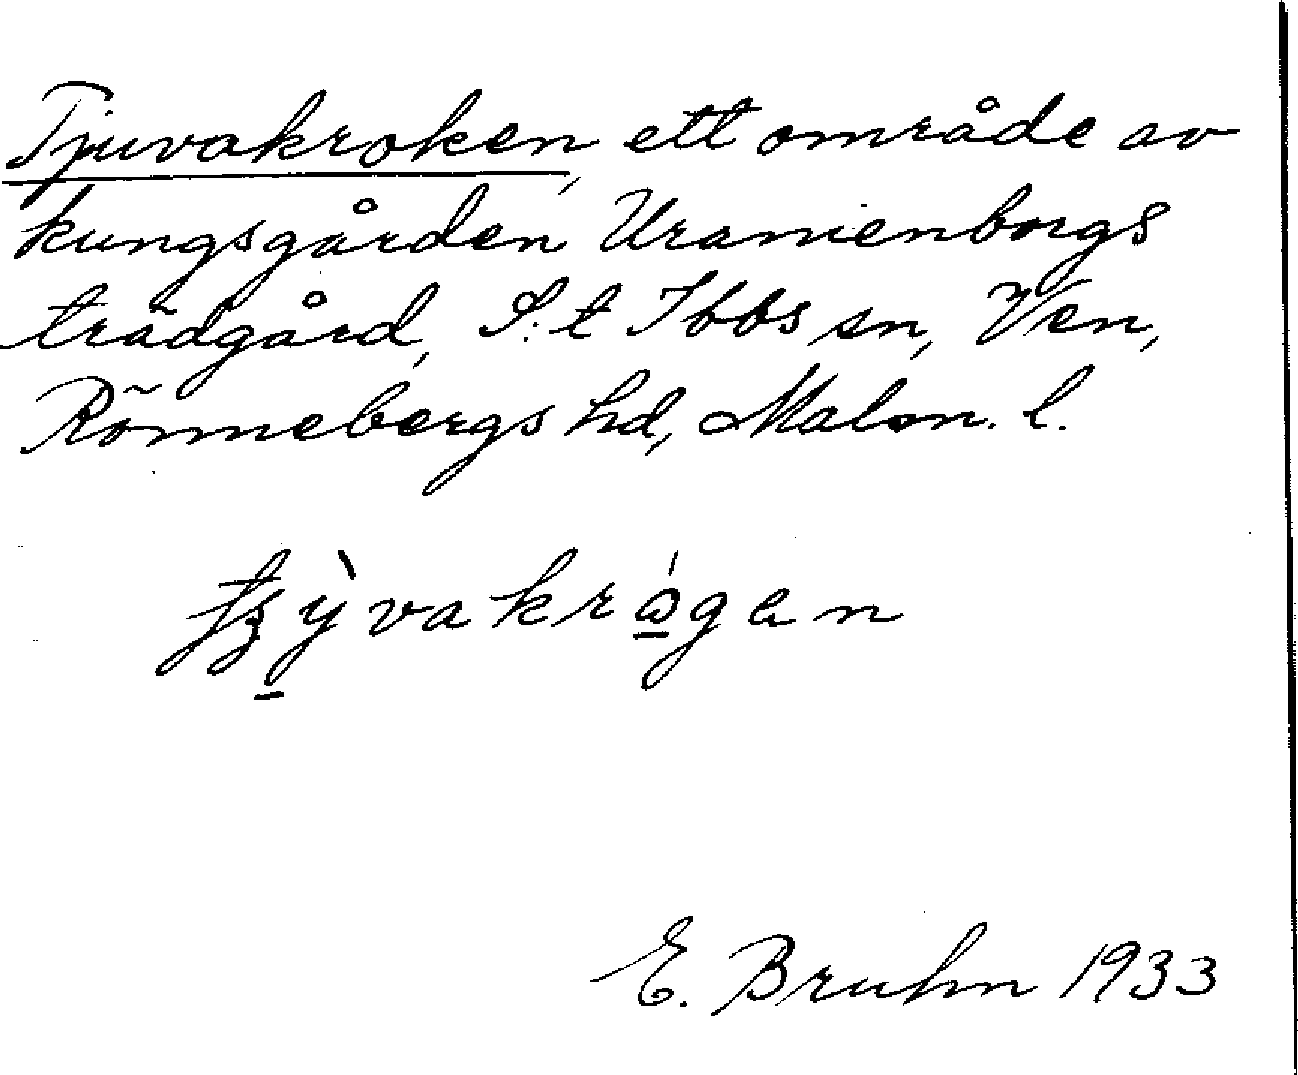 Tjuvakroken, ett område av
kungsgården Uranienborgs
trädgård, S:t Ibbs sn, Ven,
Rönnebergs hd, Malm. l.
E. Bruhn 1933